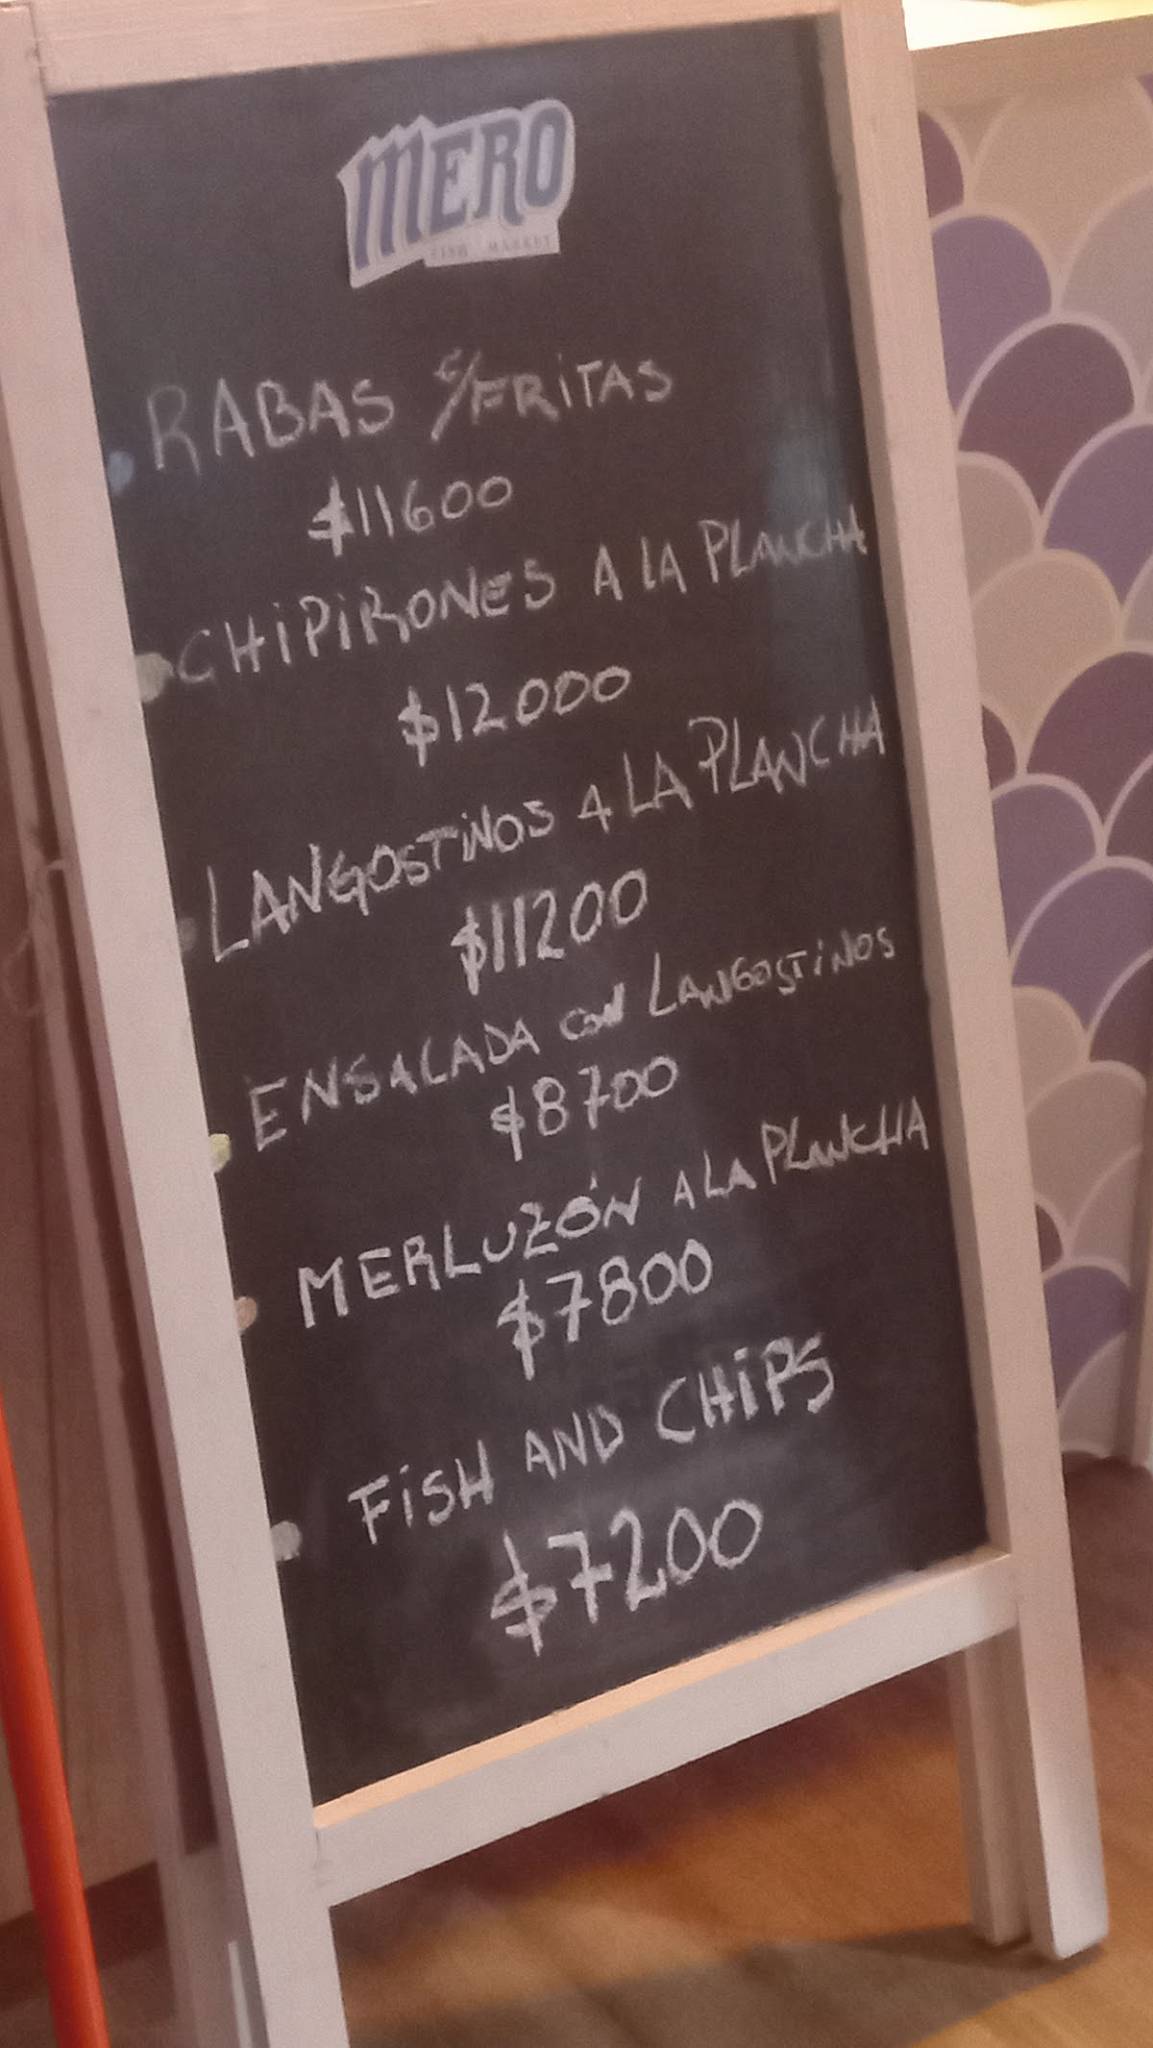 MERO
FISH MARKET
RABAS C/FRITAS
$11600
CHIPIRONES A LA PLANCHA
$12000
LANGOSTINOS A LA PLANCHA
$11200
ENSALADA CON LANGOSTINOS
$8700
MERLUZÓN A LA PLANCHA
$7800
FISH AND CHIPS
$7200